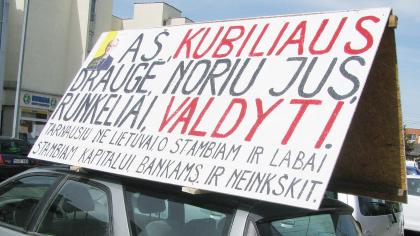 AŠ, KUBILIAUS
DRAUGĖ, NORIU JUS,
RUNKELIAI, VALDYTI.
TARNAUSIU NE LIETUVAI O STAMBIAM IR LABAI
STAMBIAM KAPITALUI BANKAMS. IR NEINKŠKIT.